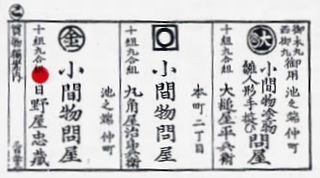 御本丸
西御丸
御用
池之端仲町
大
小間物塗物問屋
雛人形手遊び
十組九合組
大槌屋平兵衛
本町二丁目
小間物問屋
十組九合組
丸角屋治兵衛
池之端仲町
金
小間物問屋
十組九合組
日野屋忠蔵
買物獨案内